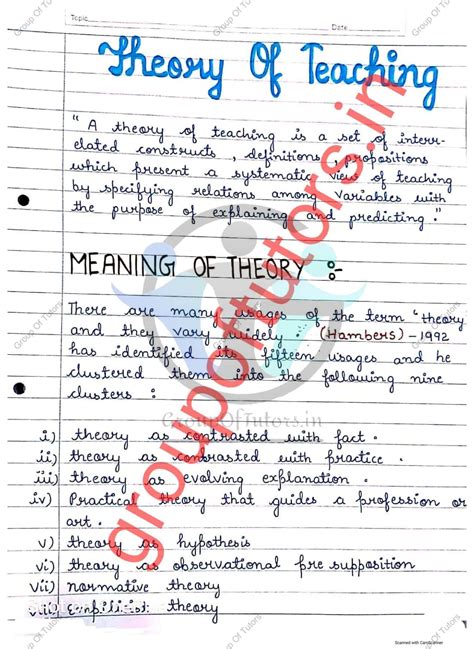 Topic
Date
Theory Of Teaching
" A theory of teaching is a set of interr-
elated constructs , definitions , propositions
which present a systematic view of teaching
by specifying relations among variables with
the purpose of explaining and predicting ."
MEANING OF THEORY :-
There are many usages of the term "theory
and they vary widely . (Hambers) - 1992
has identified its fifteen usages and he
clustered them into the following nine
clusters :
GroupOfTutors.in
i) theory as contrasted with fact .
ii) theory as contrasted with practice .
iii) theory as evolving explanation .
iv) Practical theory that guides a profession or
art .
v) theory as hypothesis
vi) theory as observational pre supposition
vii) normative theory
viii) Empilicist theory
groupoftutors.in
Group Of Tutors
Group Of Tutors
Group Of Tutors
Group Of Tutors
Group Of Tutors
Group Of Tutors
Scanned with CamScanner